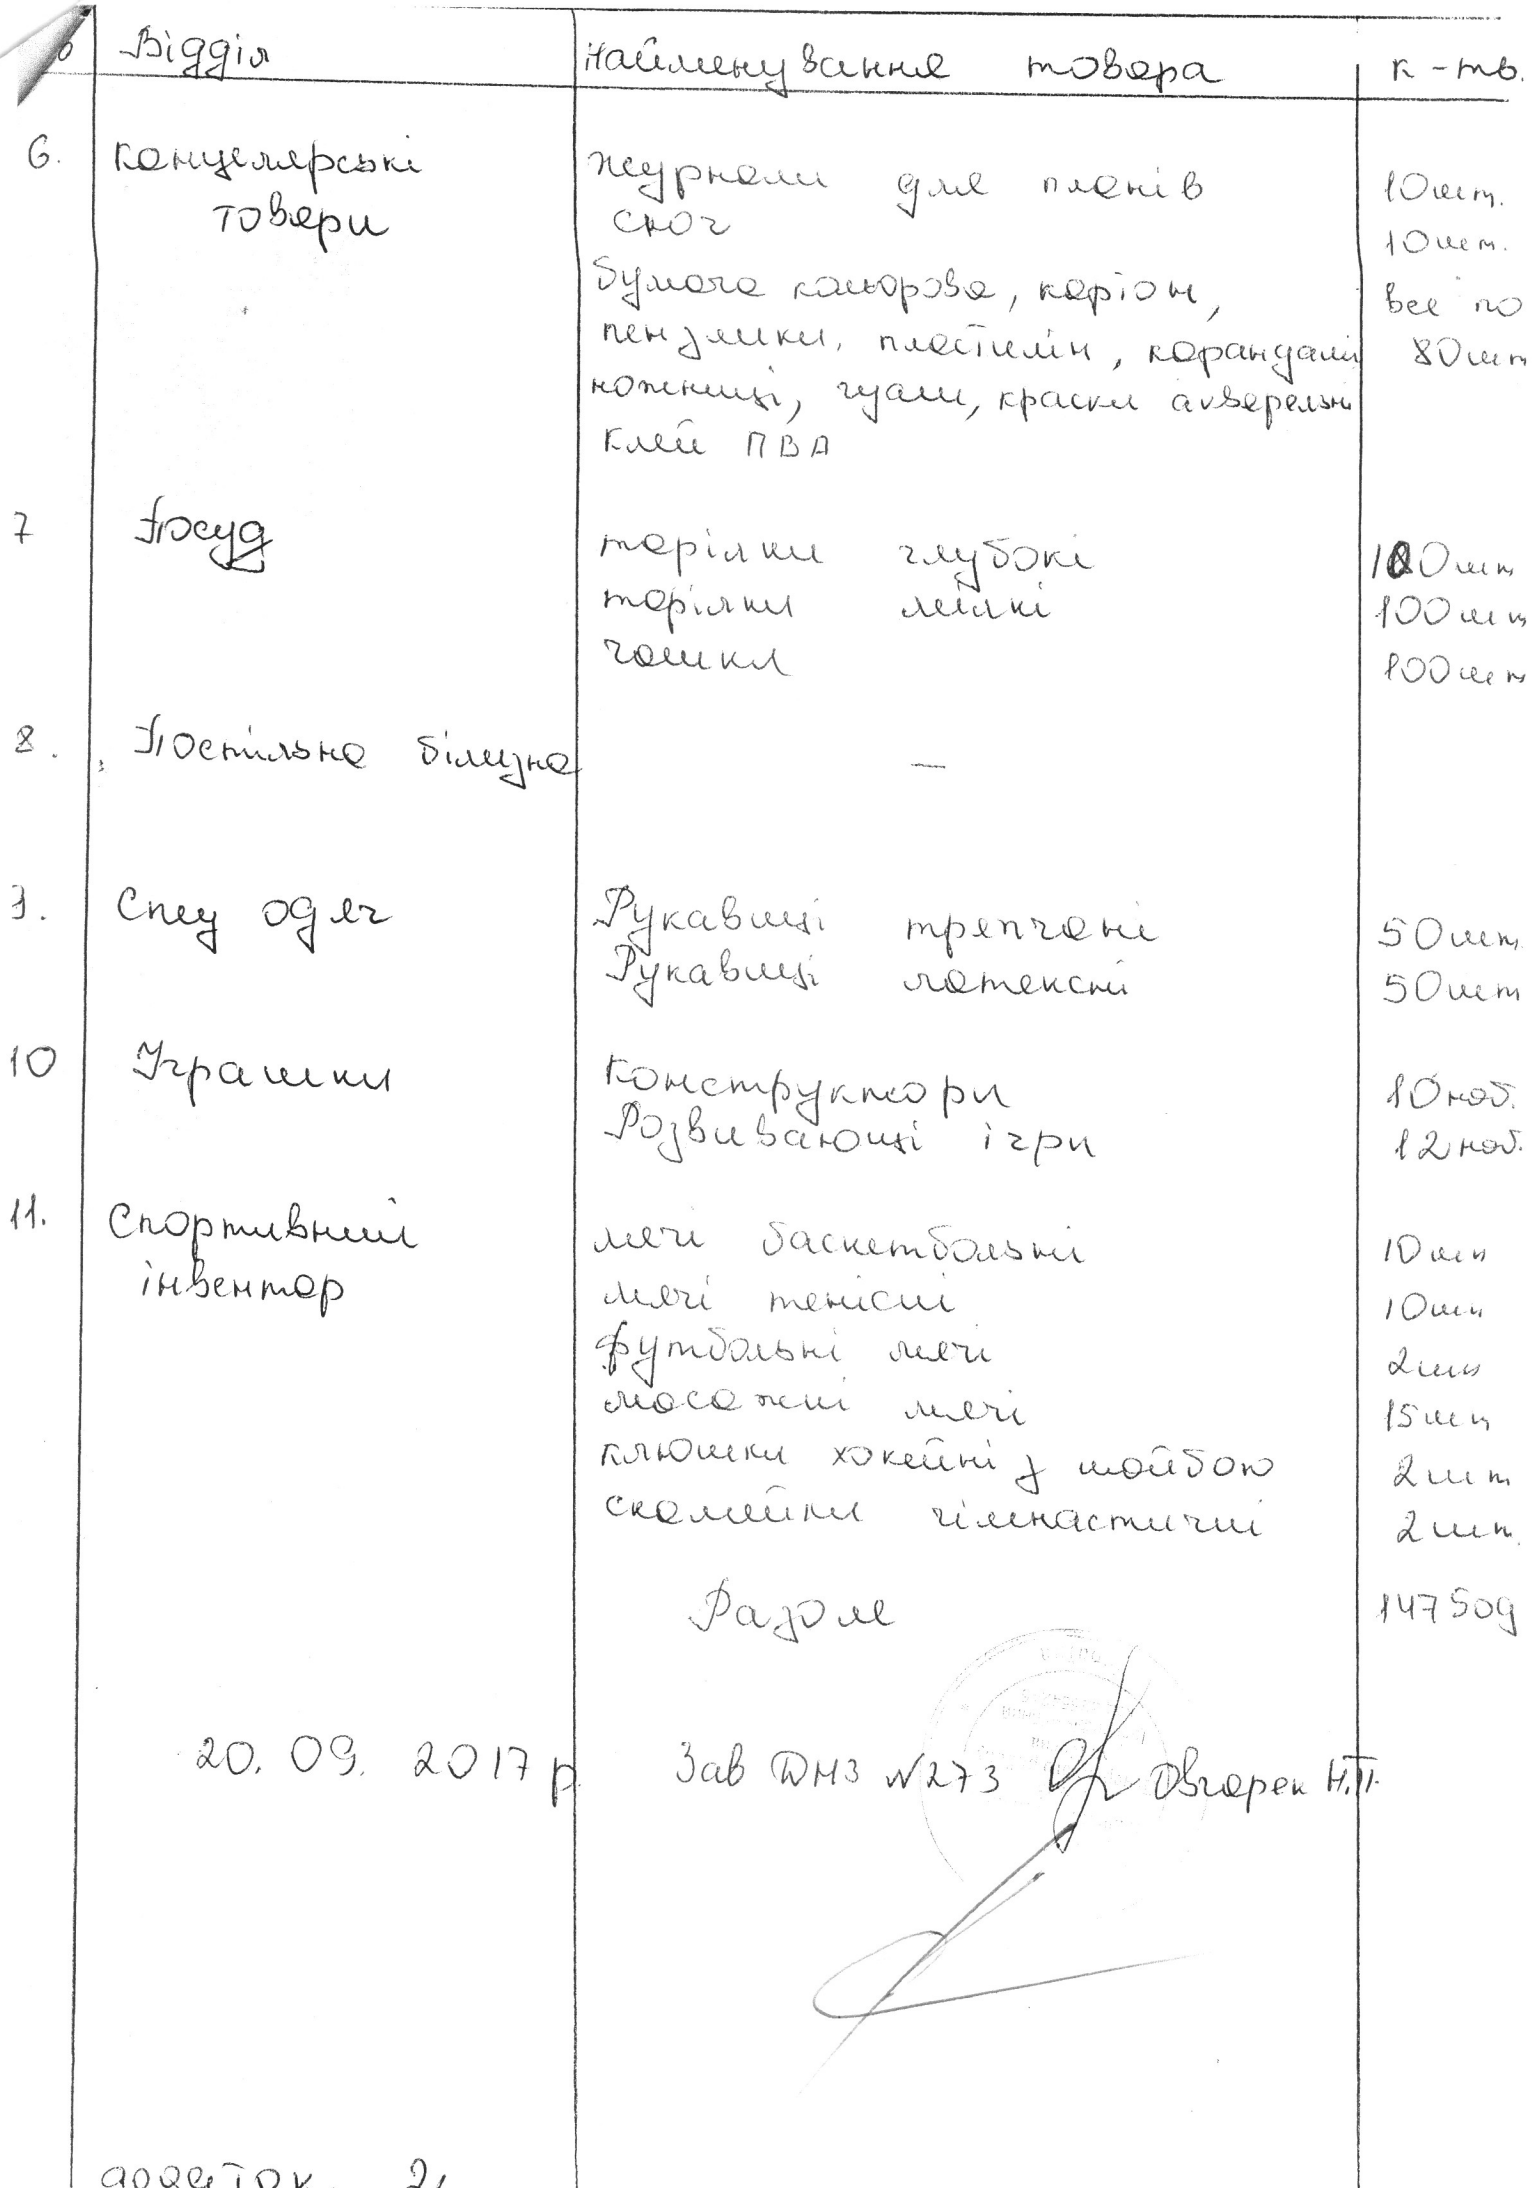 Відділ Найменування товара к-тв.
6. Канцелярські журнали для планів 10шт.
товари скоч 10шт.
бумага кольорова, картон, все по
пензлики, пластилін, карандаші 80шт
ножниці, гуаш, краски акварельні
клей ПВА
7 Посуд тарілки глубокі 100шт
тарілки мілкі 100шт
чашки 100шт
8. Постільна білизна —
9. Спец одяг Рукавиці трепчані 50шт.
Рукавиці латексні 50шт
10 Іграшки Конструктори 10наб.
Розвивающі ігри 12наб.
11. Спортивний мячі баскетбольні 10шт
інвентар мячі тенісні 10шт
футбольні мячі 2шт
масажні мячі 15шт
клюшки хокейні з шайбою 2шт
скамейки гімнастичні 2шт.
Разом 1475од
20.09.2017р Зав ДНЗ №273 Овчарек Н.П.
додаток 2